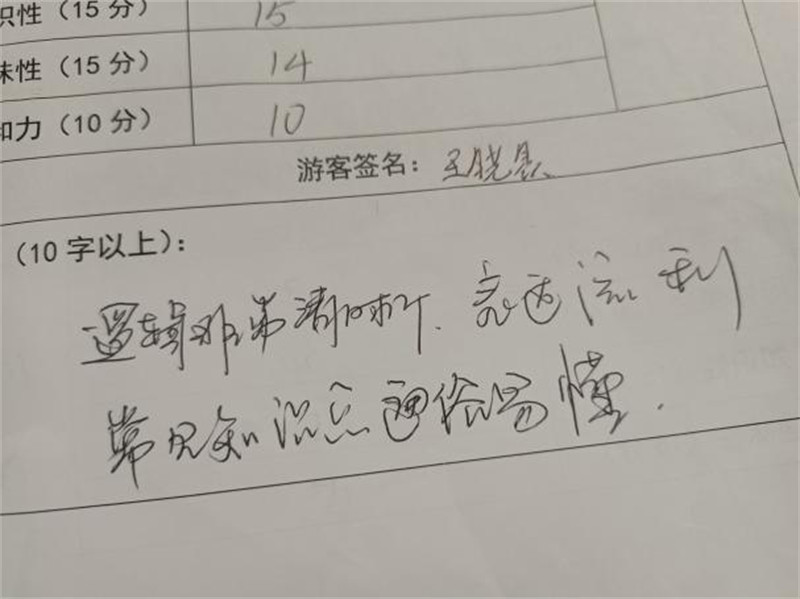 识性（15 分） 15
味性（15 分） 14
和力（10 分） 10
游客签名：王晓
（10 字以上）：
逻辑非常清晰，表达流利
常见知识点通俗易懂.